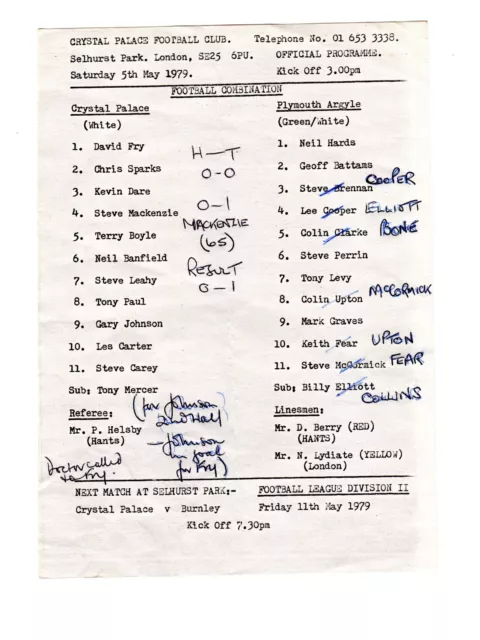 CRYSTAL PALACE FOOTBALL CLUB. Telephone No. 01 653 3338.
Selhurst Park. London, SE25 6PU. OFFICIAL PROGRAMME.
Saturday 5th May 1979. Kick Off 3.00pm
FOOTBALL COMBINATION
Crystal Palace
(White)
1. David Fry
2. Chris Sparks
3. Kevin Dare
4. Steve Mackenzie
5. Terry Boyle
6. Neil Banfield
7. Steve Leahy
8. Tony Paul
9. Gary Johnson
10. Les Carter
11. Steve Carey
Sub: Tony Mercer
(for Johnson
2nd Half
– Johnson
in goal
for Fry)
Referee:
Mr. P. Helsby
(Hants)
Doctor called
to Fry.
H–T
0-0
0-1
MACKENZIE
(65)
RESULT
0-1
Plymouth Argyle
(Green/White)
1. Neil Hards
2. Geoff Battams
3. Steve Brennan COOPER
4. Lee Cooper ELLIOTT
5. Colin Clarke BONE
6. Steve Perrin
7. Tony Levy
8. Colin Upton McCORMICK
9. Mark Graves
10. Keith Fear UPTON
11. Steve McCormick FEAR
Sub: Billy Elliott
COLLINS
Linesmen:
Mr. D. Berry (RED)
(HANTS)
Mr. N. Lydiate (YELLOW)
(London)
NEXT MATCH AT SELHURST PARK:- FOOTBALL LEAGUE DIVISION II
Crystal Palace v Burnley Friday 11th May 1979
Kick Off 7.30pm